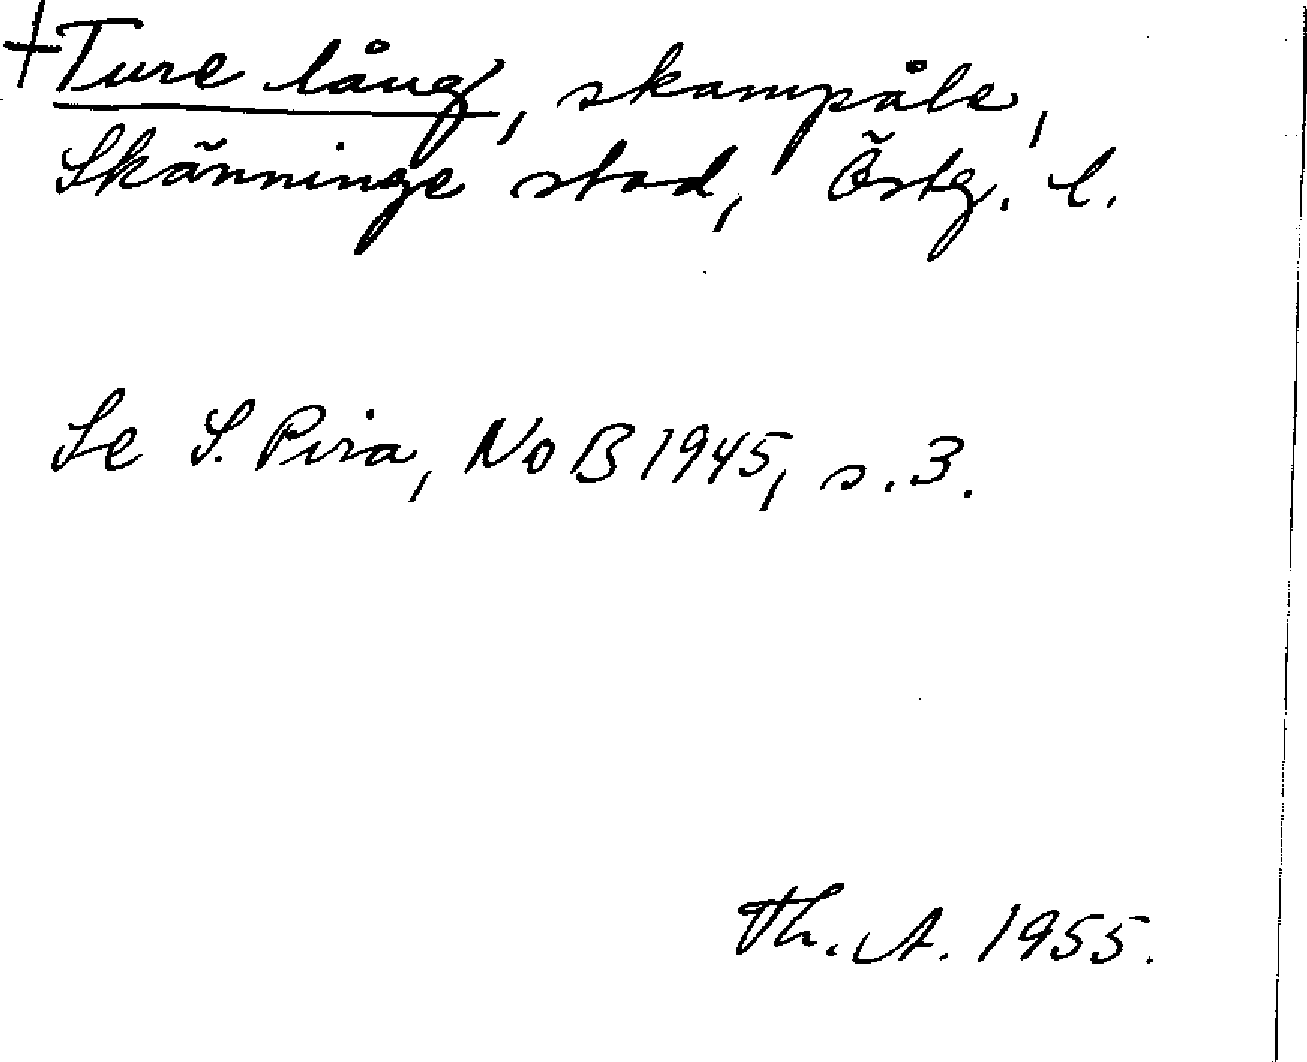 +Ture lång, skampåle,
Skänninge stad, Östg. l.
Se S. Pira, NoB 1945, s. 3.
Th. A. 1955.